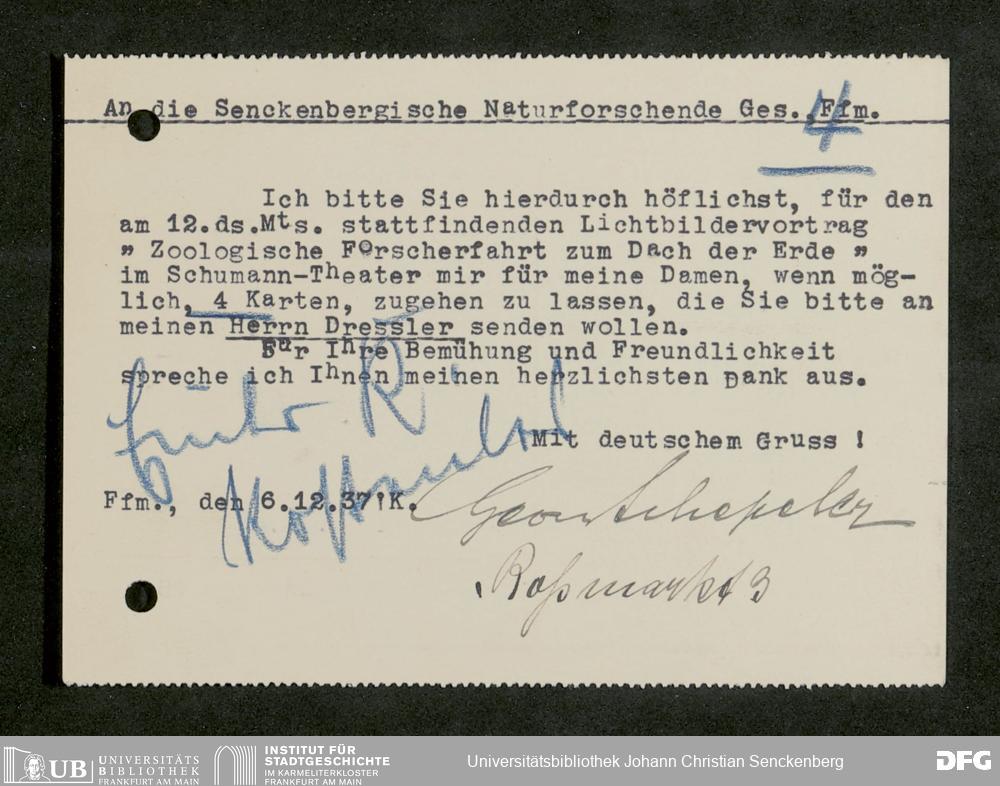 An die Senckenbergische Naturforschende Ges. Ffm.
4
Ich bitte Sie hierdurch höflichst, für den
am 12.ds.Mts. stattfindenden Lichtbildervortrag
" Zoologische Forscherfahrt zum Dach der Erde "
im Schumann-Theater mir für meine Damen, wenn mög-
lich, 4 Karten, zugehen zu lassen, die Sie bitte an
meinen Herrn Dressler senden wollen.
Für Ihre Bemühung und Freundlichkeit
spreche ich Ihnen meinen herzlichsten Dank aus.
Mit deutschem Gruss !
Ffm., den 6.12.37!K.
Georg Schepeler
Roßmarkt 3
UB UNIVERSITÄTS
BIBLIOTHEK
FRANKFURT AM MAIN
INSTITUT FÜR
STADTGESCHICHTE
IM KARMELITERKLOSTER
FRANKFURT AM MAIN
Universitätsbibliothek Johann Christian Senckenberg
DFG